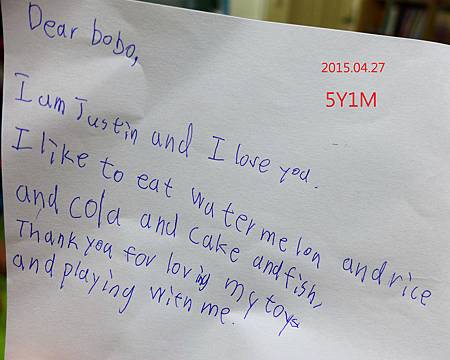 Dear bobo,
2015.04.27
5Y1M
I am Justin and I love you.
I like to eat watermelon and rice
and cola and cake and fish,
Thank you for loving my toys
and playing with me.